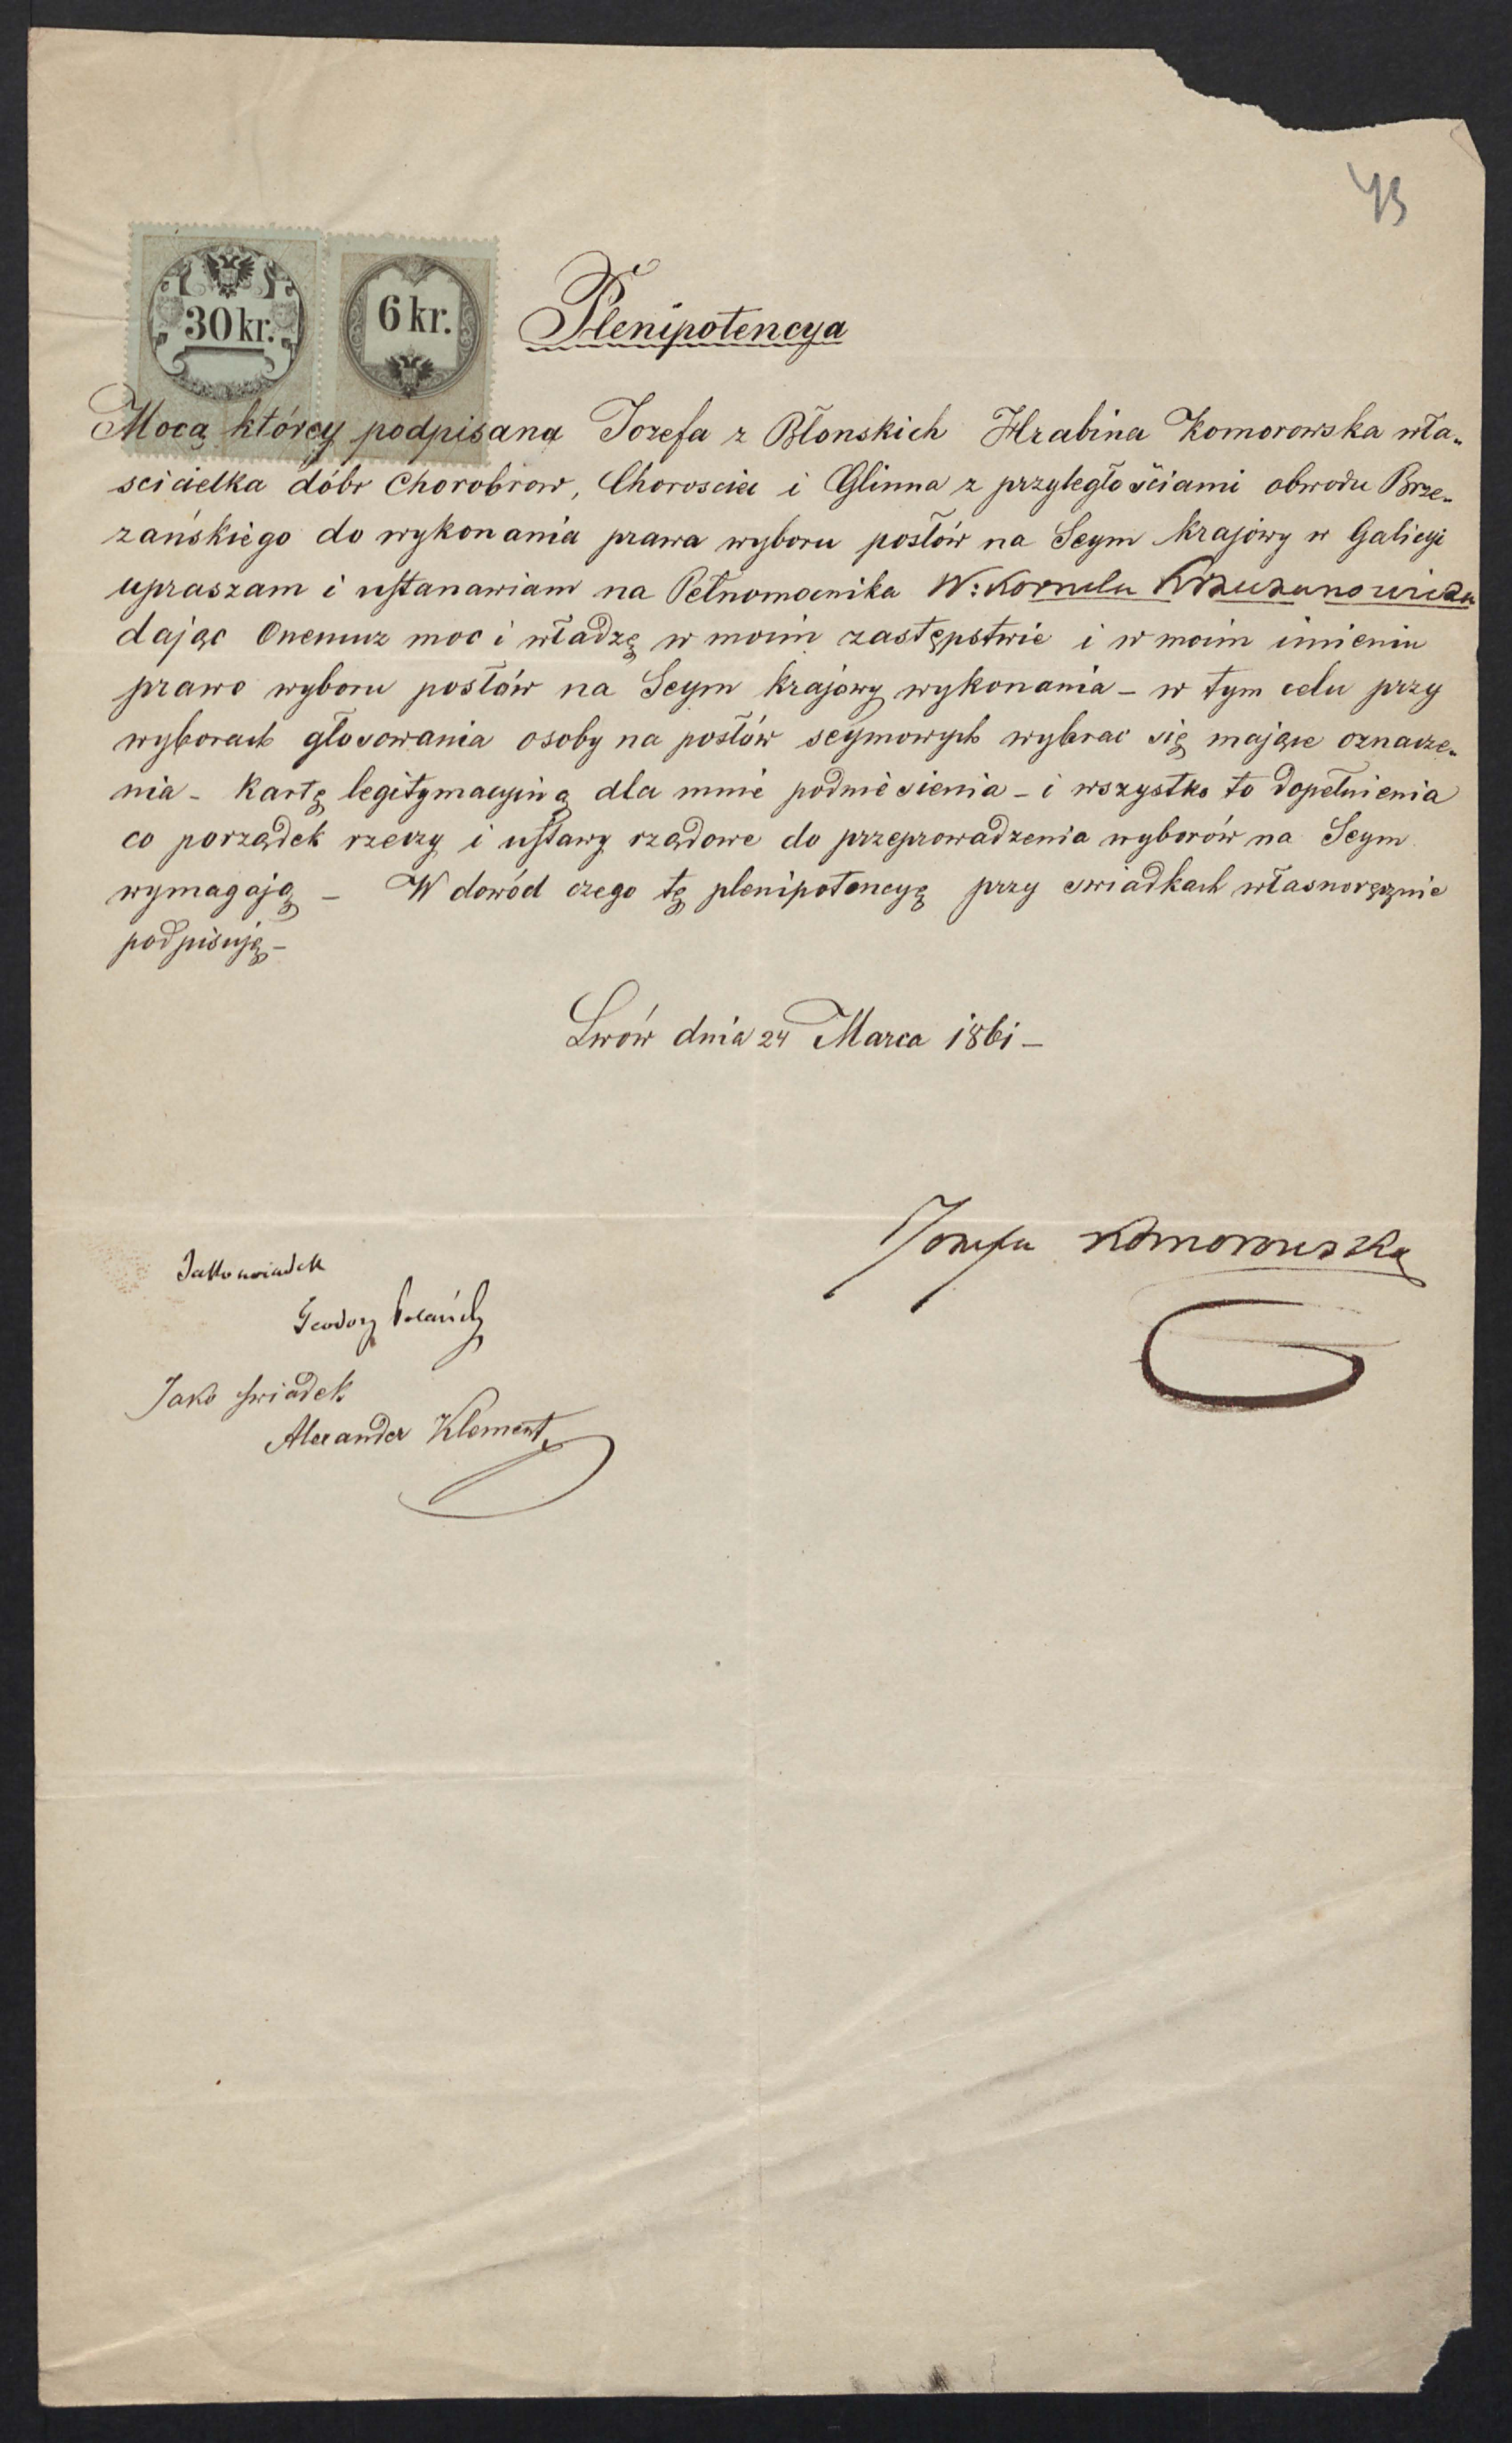 43
30 kr.
6 kr.
Plenipotencya
Mocą którey podpisana Jozefa z Błonskich Hrabina Komorowska wła-
scicielka dóbr Chorobrow, Chorosciec i Glinna z przyległościami obwodu Brze-
zańskiego do wykonania prawa wyboru posłów na Seym krajowy w Galicyi
upraszam i ustanawiam na Pełnomocnika W: Kornela Krzeczunowicza
dając Onemuz moc i władzę w moim zastępstwie i w moim imieniu
prawo wyboru posłów na Seym krajowy wykonania – w tym celu przy
wyborach głosowania osoby na posłów seymowych wybrac się mające oznacze-
nia – Kartę legitymacyiną dla mnie podniesienia – i wszystko to dopełnienia
co porządek rzeczy i ustawy rządowe do przeprowadzenia wyborów na Seym
wymagają – W dowód czego tę plenipotencyę przy swiadkach własnoręcznie
podpisuję –
Lwów dnia 24 Marca 1861 –
Jozefa Komorowska
Jako swiadek
Teodor
Jako swiadek
Alexander Klement